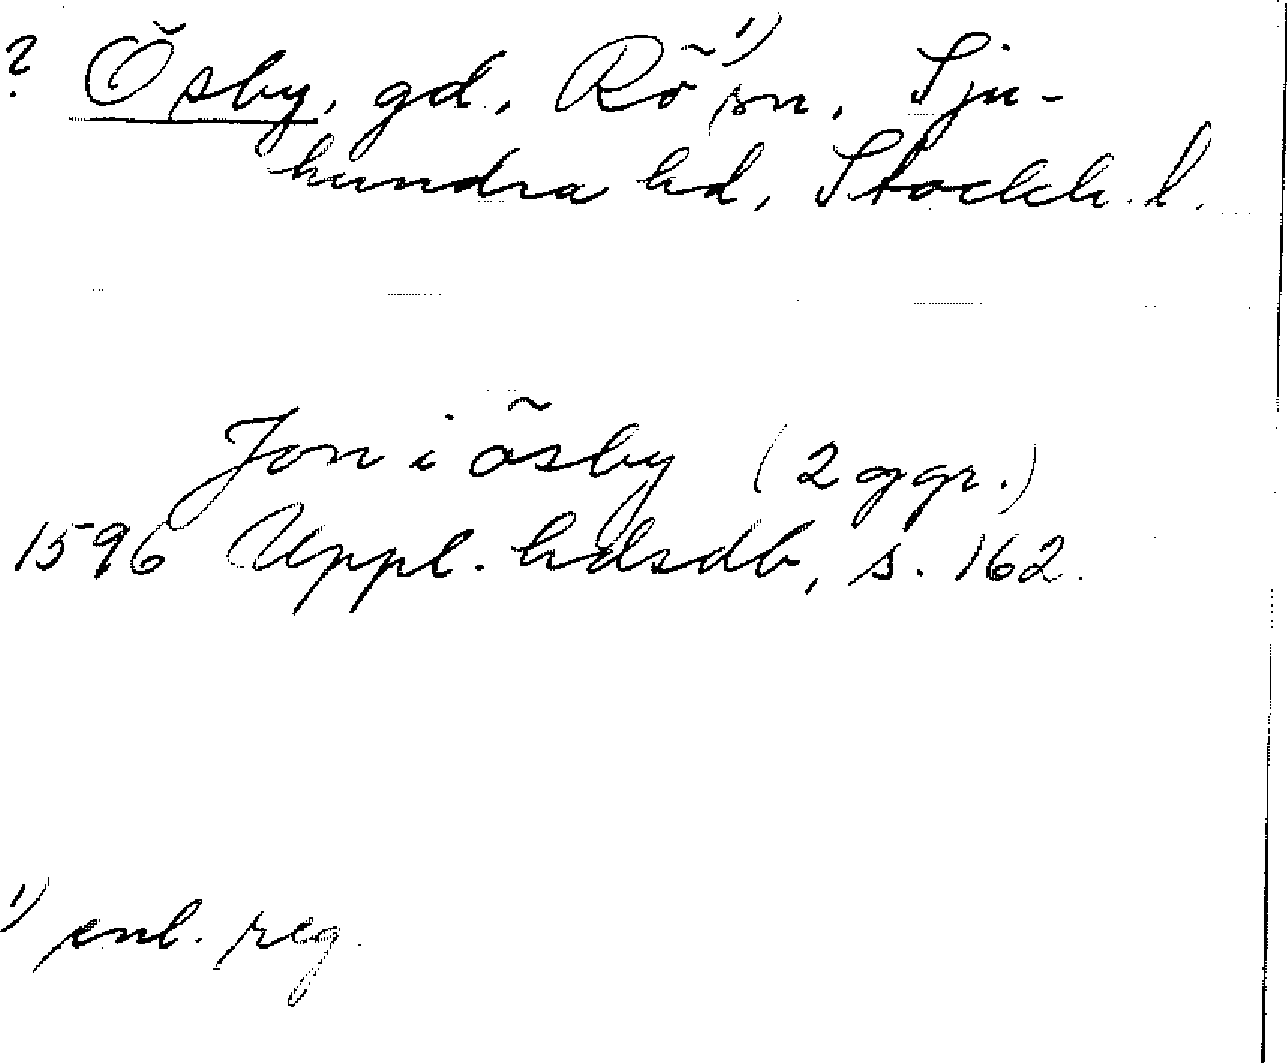 ? Ösby, gd., Rö ¹⁾ sn, Sju-
hundra hd, Stockh. l.
Jon i ösby (2 ggr.)
1596 Uppl. hdsdb, s. 162.
¹⁾ enl. reg.